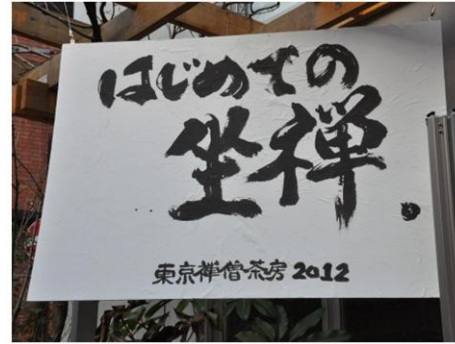 はじめての
坐禅。
東京禅僧茶房 2012